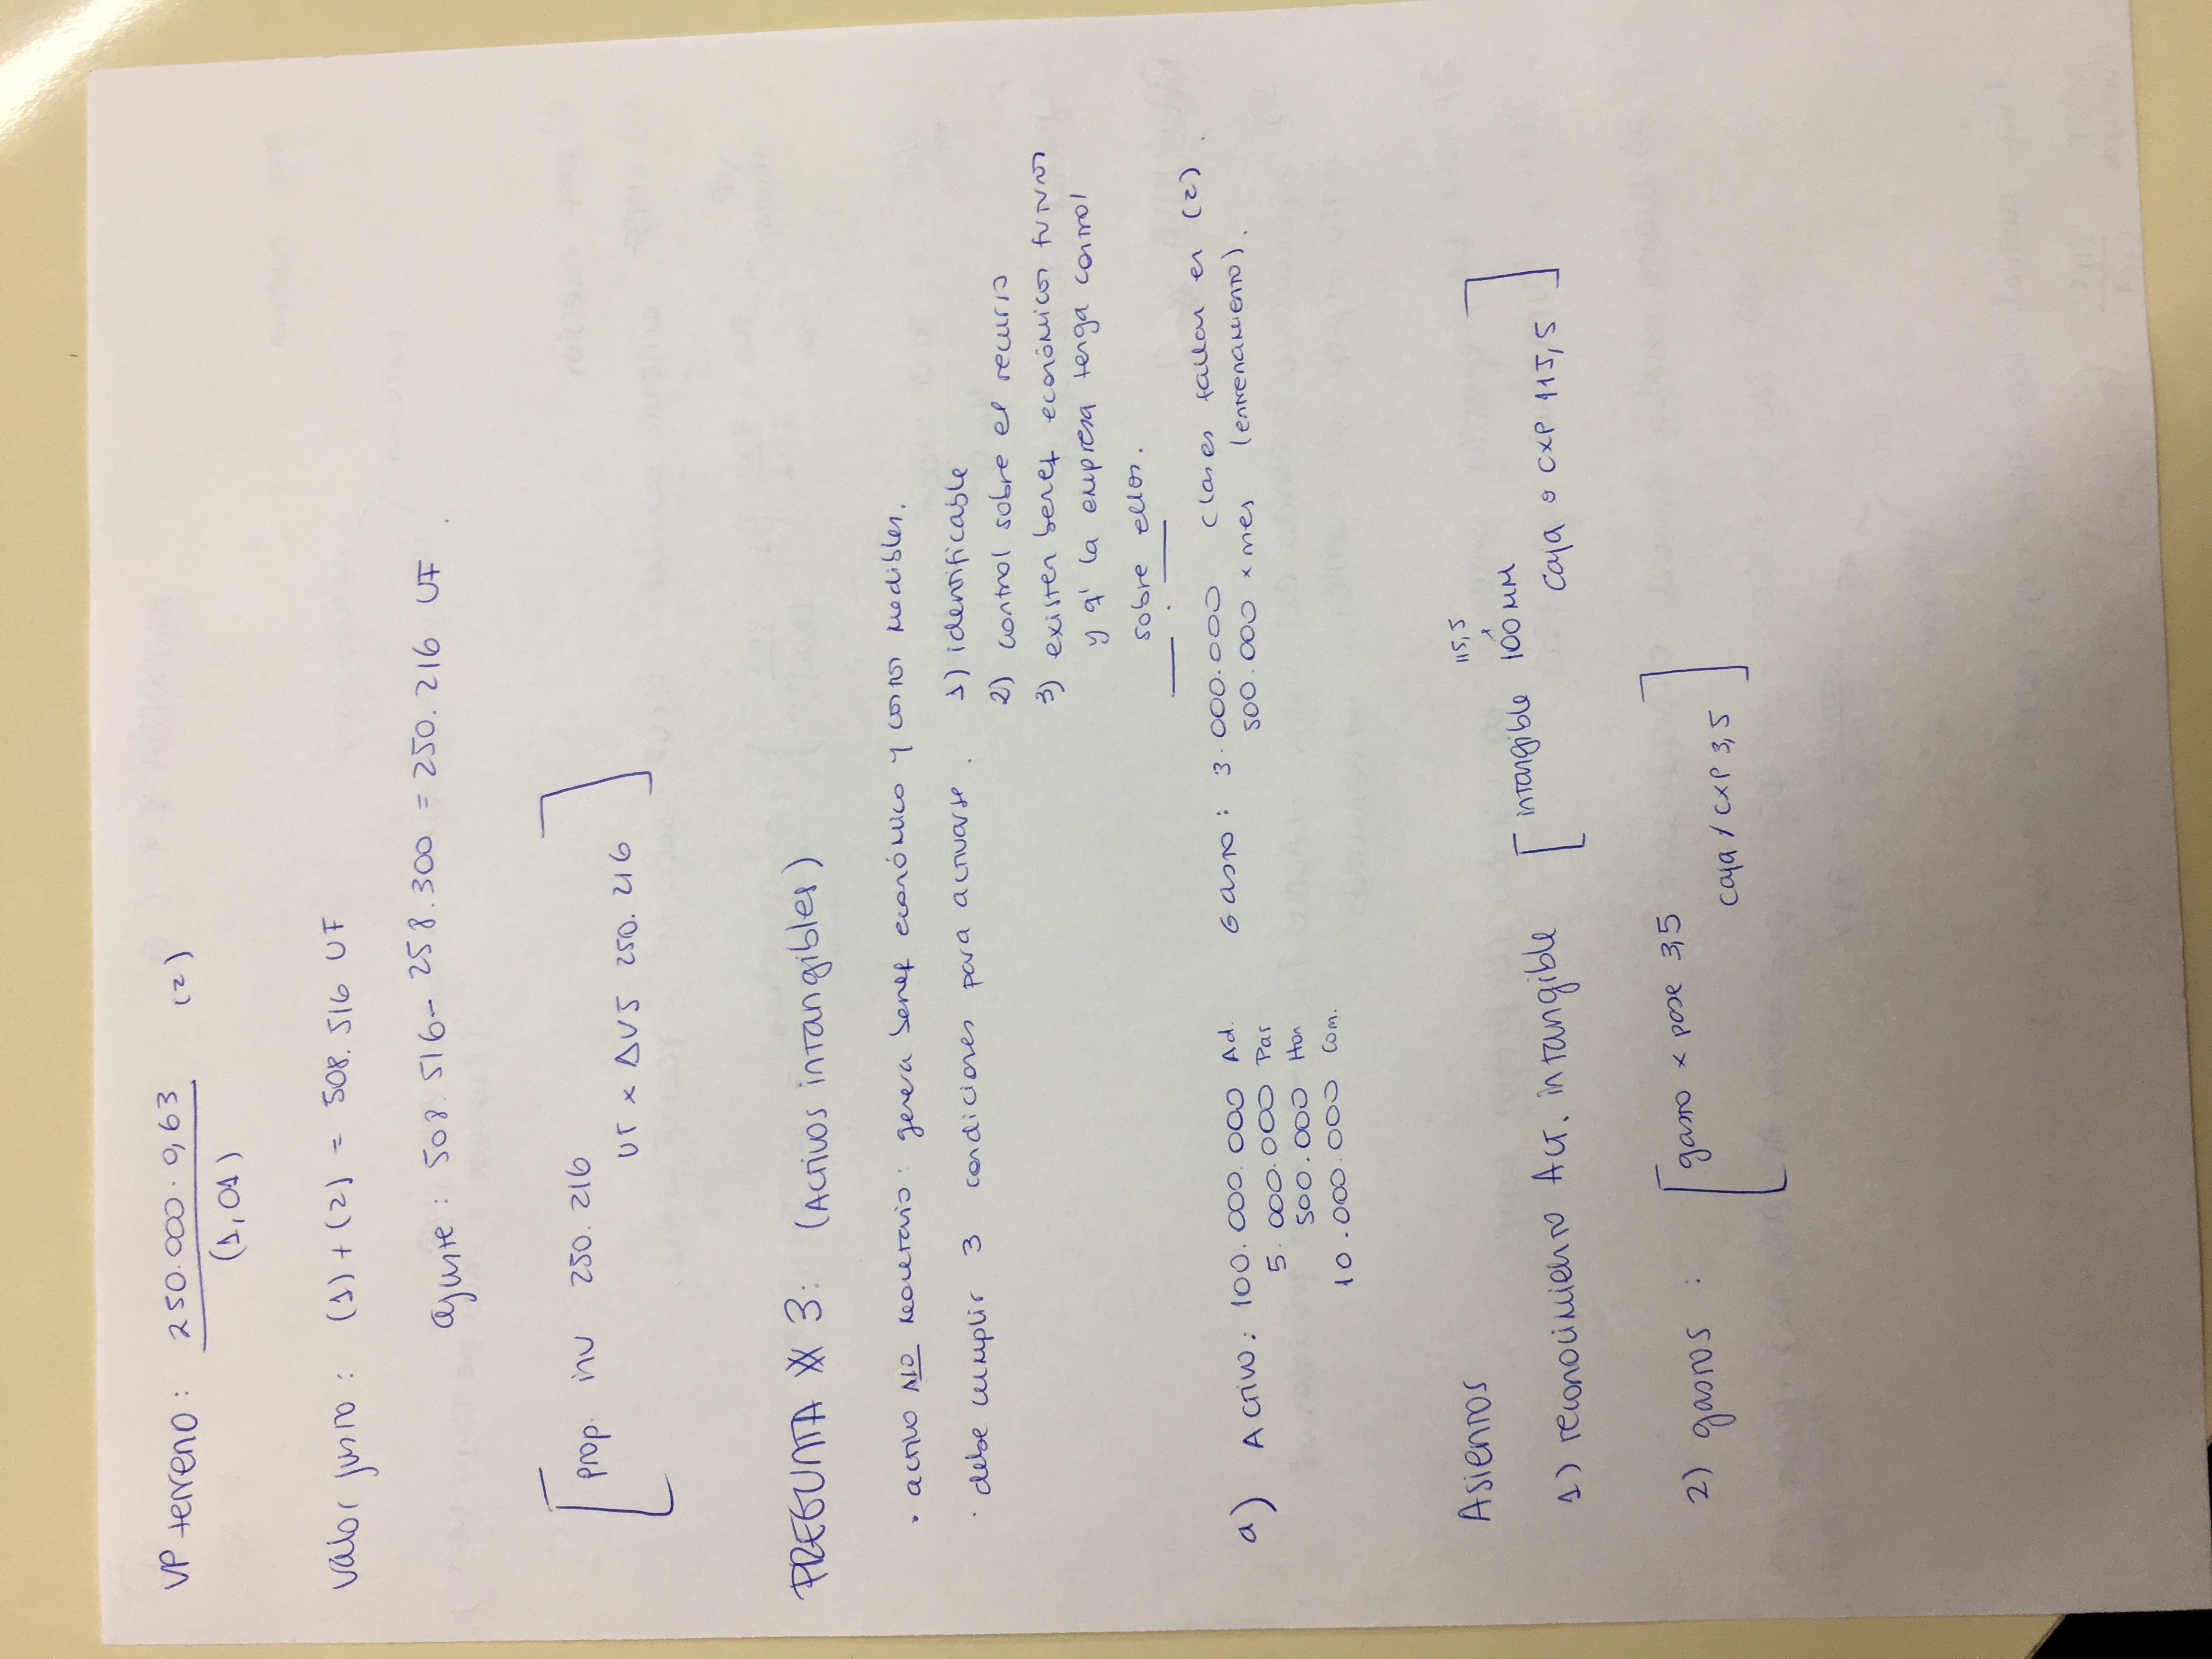 VP terreno: 250.000 · 0,63 (2)
(1,01)
Valor justo: (1) + (2) = 508.516 UF
ajuste: 508.516 - 258.300 = 250.216 UF.
prop. inv 250.216
UT x ΔVJ 250.216
PREGUNTA # 3: (Activos intangibles)
· activo NO monetario: genera benef económico y costos medibles.
· debe cumplir 3 condiciones para activarse. 1) identificable
2) control sobre el recurso
3) existen benef económicos futuros
y q' la empresa tenga control
sobre ellos.
a) Activo: 100.000.000 Ad. Gasto: 3.000.000 clases fallan en (2).
5.000.000 Par 500.000 x mes (entrenamiento).
500.000 Hon
10.000.000 Com.
Asientos
115,5
1) reconocimiento Act. intangible intangible 100 MM
Caja o CXP 115,5
2) gastos: gasto x pase 3,5
Caja / CXP 3,5